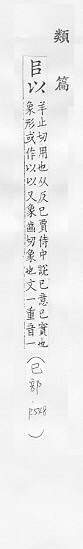 類篇
㠯以
羊止切用也从反巳賈侍中說巳意巳實也
象形或作以以又象齒切象也文一重音一
(巳部．P548)